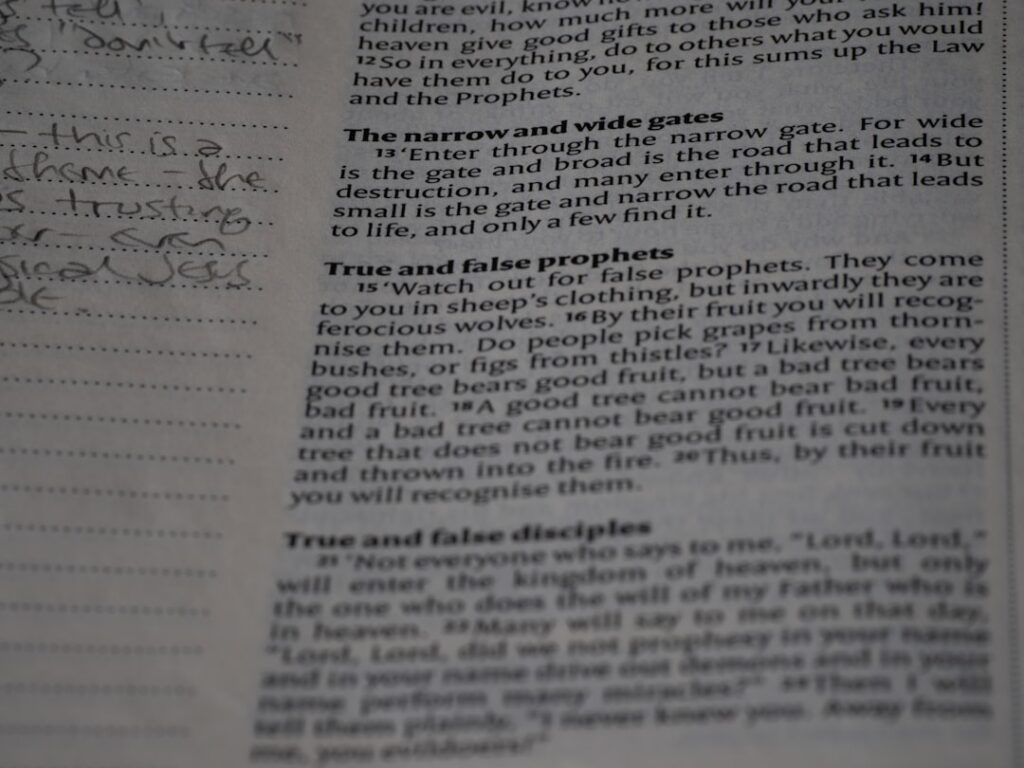 tell,
"don't tell"
- this is a
theme - the
trusting
you are evil, know
children, how much more will your
heaven give good gifts to those who ask him!
12 So in everything, do to others what you would
have them do to you, for this sums up the Law
and the Prophets.
The narrow and wide gates
13 ‘Enter through the narrow gate. For wide
is the gate and broad is the road that leads to
destruction, and many enter through it. 14 But
small is the gate and narrow the road that leads
to life, and only a few find it.
True and false prophets
15 ‘Watch out for false prophets. They come
to you in sheep’s clothing, but inwardly they are
ferocious wolves. 16 By their fruit you will recog-
nise them. Do people pick grapes from thorn-
bushes, or figs from thistles? 17 Likewise, every
good tree bears good fruit, but a bad tree bears
bad fruit. 18 A good tree cannot bear bad fruit,
and a bad tree cannot bear good fruit. 19 Every
tree that does not bear good fruit is cut down
and thrown into the fire. 20 Thus, by their fruit
you will recognise them.
True and false disciples
21 ‘Not everyone who says to me, “Lord, Lord,”
will enter the kingdom of heaven, but only
the one who does the will of my Father who is
in heaven. 22 Many will say to me on that day,
“Lord, Lord, did we not prophesy in your name
and in your name drive out demons and in your
name perform many miracles?” 23 Then I will
tell them plainly, “I never knew you. Away from
me, you evildoers!”